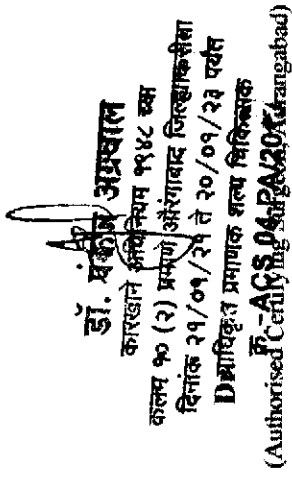 डॉ. पंकज अग्रवाल
कारखाने अधिनियम १९४८ च्या
कलम १० (२) प्रमाणे औरंगाबाद जिल्ह्याकरीता
दिनांक २१/०१/२१ ते २०/०१/२३ पर्यंत
प्राधिकृत प्रमाणक शल्य चिकित्सक
क्र.-ACS 04 PA/
(Authorised Certifying Surgeon, Aurangabad)